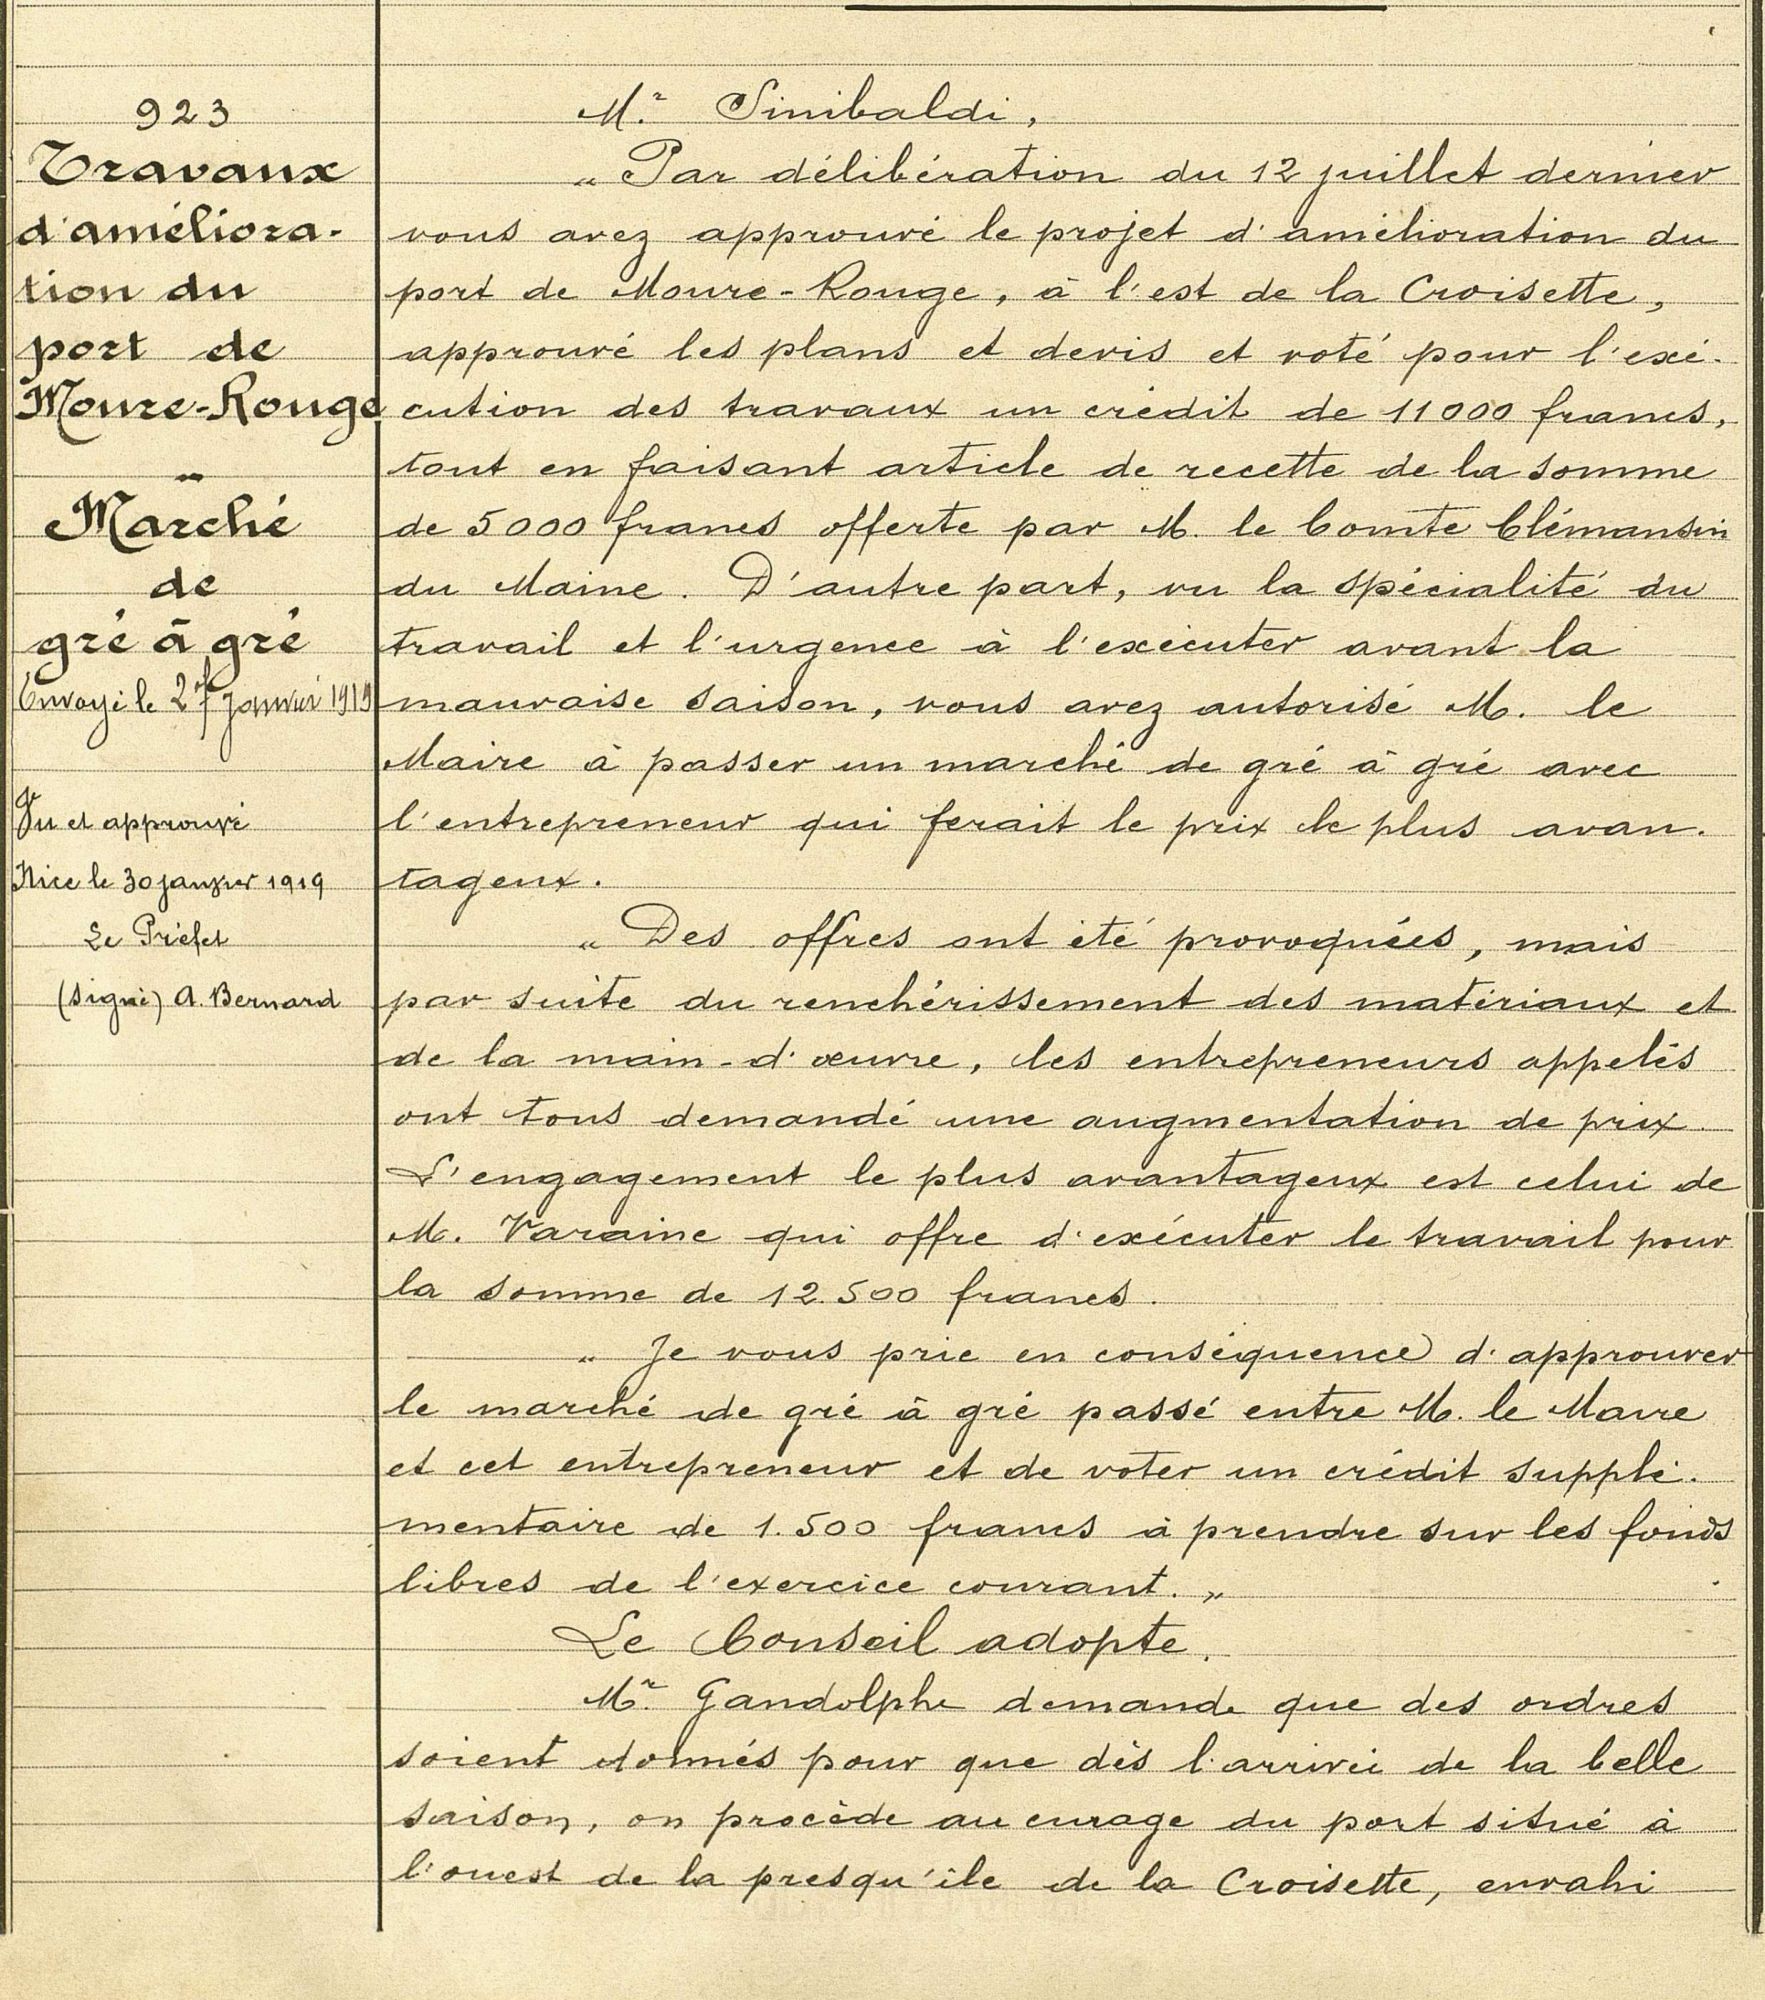 923
Travaux
d'améliora-
tion du
port de
Moure-Rouge
"
Marché
de
gré à gré
Envoyé le 27 Janvier 1919
Vu et approuvé
Nice le 30 janvier 1919
Le Préfet
(signé) A. Bernard
Mr. Sinibaldi,
" Par délibération du 12 juillet dernier
vous avez approuvé le projet d'amélioration du
port de Moure-Rouge, à l'est de la Croisette,
approuvé les plans et devis et voté pour l'exé-
cution des travaux un crédit de 11000 francs,
tout en faisant article de recette de la somme
de 5000 francs offerte par M. le Comte Clémansin
du Maine. D'autre part, vu la spécialité du
travail et l'urgence à l'exécuter avant la
mauvaise saison, vous avez autorisé M. le
Maire à passer un marché de gré à gré avec
l'entrepreneur qui ferait le prix le plus avan-
tageux.
" Des offres ont été provoquées, mais
par suite du renchérissement des matériaux et
de la main-d'œuvre, les entrepreneurs appelés
ont tous demandé une augmentation de prix.
L'engagement le plus avantageux est celui de
M. Varaine qui offre d'exécuter le travail pour
la somme de 12.500 francs.
" Je vous prie en conséquence d'approuver
le marché de gré à gré passé entre M. le Maire
et cet entrepreneur et de voter un crédit supplé-
mentaire de 1.500 francs à prendre sur les fonds
libres de l'exercice courant. "
Le Conseil adopte.
Mr. Gandolphe demande que des ordres
soient donnés pour que dès l'arrivée de la belle
saison, on procède au curage du port situé à
l'ouest de la presqu'île de la Croisette, envahi